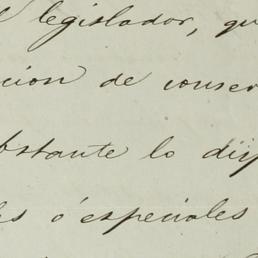 legislador, qu
cion de conser
bstante lo disp
es ó especiales